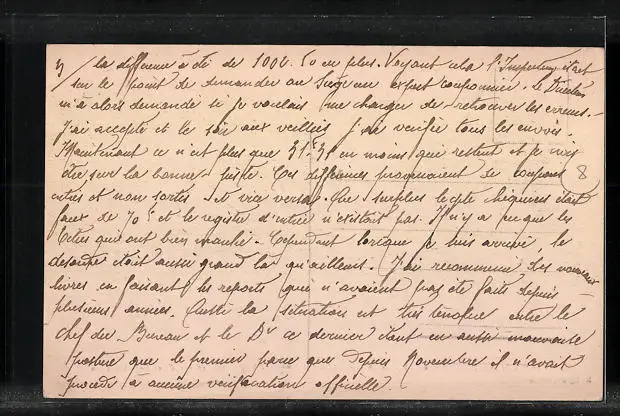 3) la différence a été de 1006.50 en plus. Voyant cela l'Inspecteur était
sur le point de demander au Siège un expert couponnier. Le Directeur
m'a alors demandé si je voulais me charger de retrouver les erreurs.
J'ai accepté et le soir aux veillées j'ai vérifié tous les envois.
Maintenant ce n'est plus que en moins qui restent et je crois
être sur la bonne piste. Ces différences provenaient de coupons 8
entrés et non sortis et vice versa. Au surplus le cpte chéquiers était
faux de 70 et le registre d'entrée n'existait pas. Il n'y a que que les
qui ont bien marché. Cependant lorsque je suis arrivé, le
désordre était aussi grand là qu'ailleurs. J'ai recommencé des nouveaux
livres en faisant les reports que n'avaient pas été faits depuis
plusieurs années. Aussi la situation est très tendue entre le
chef du Bureau et le Dr ce dernier étant en aussi mauvaise
posture que le premier parce que depuis Novembre il n'avait
procédé à aucune vérification officielle.